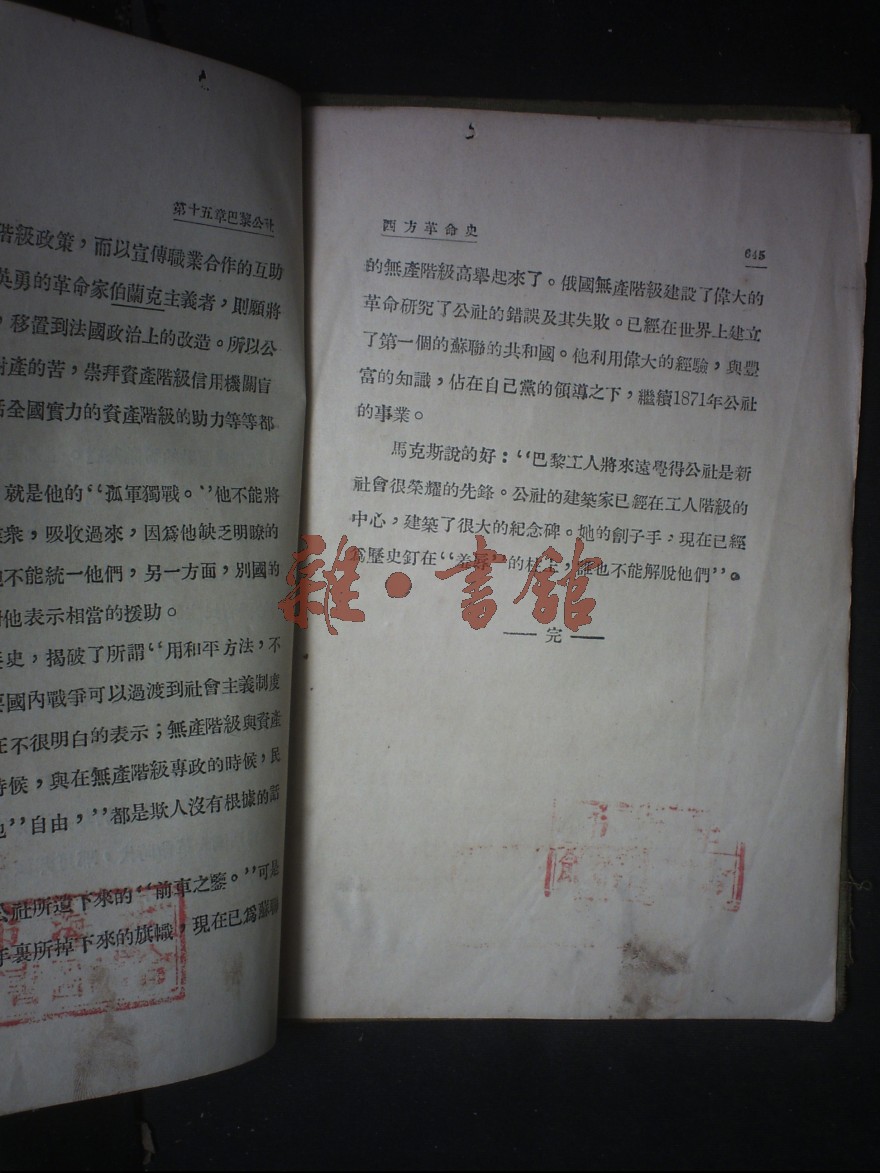 第十五章巴黎公社
階級政策，而以宣傳職業合作的互助
英勇的革命家伯蘭克主義者，則願將
，移置到法國政治上的改造。所以公
財產的苦，崇拜資產階級信用機關盲
括全國實力的資產階級的助力等等都
就是他的“孤軍獨戰。”他不能將
衆，吸收過來，因爲他缺乏明瞭的
不能統一他們，另一方面，別國的
他表示相當的援助。
史，揭破了所謂“用和平方法，不
國內戰爭可以過渡到社會主義制度
在不很明白的表示；無產階級與資產
時候，與在無產階級專政的時候，民
“自由，”都是欺人沒有根據的話
公社所遺下來的“前車之鑒。”可是
手裏所掉下來的旗幟，現在已爲蘇聯
西方革命史
645
的無產階級高舉起來了。俄國無產階級建設了偉大的
革命研究了公社的錯誤及其失敗。已經在世界上建立
了第一個的蘇聯的共和國。他利用偉大的經驗，與豐
富的知識，佔在自己黨的領導之下，繼續1871年公社
的事業。
馬克斯說的好：“巴黎工人將來遠覺得公社是新
社會很榮耀的先鋒。公社的建築家已經在工人階級的
中心，建築了很大的紀念碑。她的劊子手，現在已經
爲歷史釘在“羞辱”的柱上，誰也不能解脫他們”。
— 完 —
雜·書館